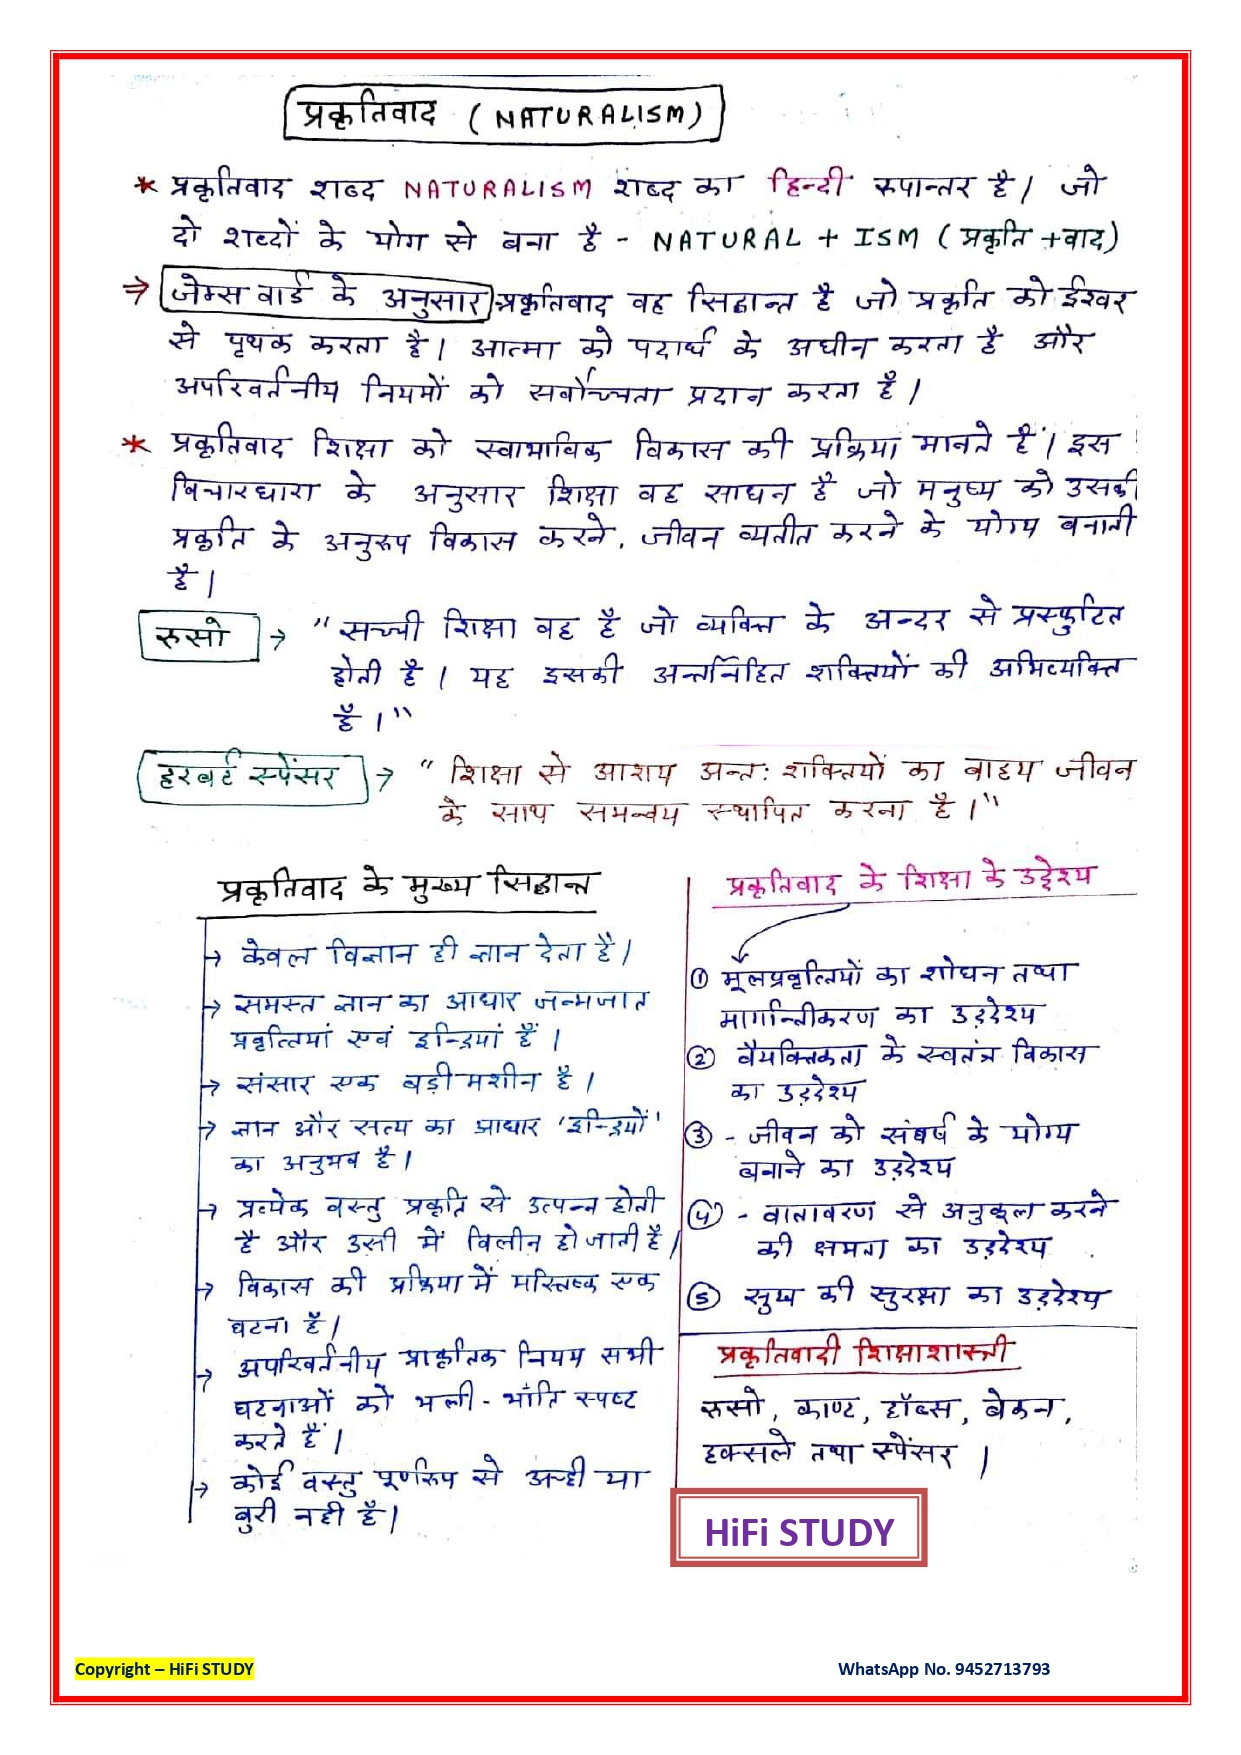 प्रकृतिवाद (NATURALISM)
* प्रकृतिवाद शब्द NATURALISM शब्द का हिन्दी रूपान्तर है। जो
दो शब्दों के योग से बना है - NATURAL + ISM (प्रकृति +वाद)
→ जेम्स वार्ड के अनुसार प्रकृतिवाद वह सिद्धान्त है जो प्रकृति को ईश्वर
से पृथक करता है। आत्मा को पदार्थ के अधीन करता है और
अपरिवर्तनीय नियमों को सर्वोच्चता प्रदान करता है।
* प्रकृतिवाद शिक्षा को स्वाभाविक विकास की प्रक्रिया मानते हैं। इस
विचारधारा के अनुसार शिक्षा वह साधन है जो मनुष्य को उसकी
प्रकृति के अनुरूप विकास करने, जीवन व्यतीत करने के योग्य बनाती
है।
रुसो → "सच्ची शिक्षा वह है जो व्यक्ति के अन्दर से प्रस्फुटित
होती है। यह इसकी अन्तर्निहित शक्तियों की अभिव्यक्ति
है।"
हरबर्ट स्पेंसर → "शिक्षा से आशय अन्तः शक्तियों का वाह्य जीवन
के साथ समन्वय स्थापित करना है।"
प्रकृतिवाद के मुख्य सिद्धान्त
→ केवल विज्ञान ही ज्ञान देता है।
→ समस्त ज्ञान का आधार जन्मजात
प्रवृत्तियां एवं इन्द्रियां हैं।
→ संसार एक बड़ी मशीन है।
→ ज्ञान और सत्य का आधार 'इन्द्रियों'
का अनुभव है।
→ प्रत्येक वस्तु प्रकृति से उत्पन्न होती
है और उसी में विलीन हो जाती है।
→ विकास की प्रक्रिया में मस्तिष्क एक
घटना है।
→ अपरिवर्तनीय प्राकृतिक नियम सभी
घटनाओं को भली-भांति स्पष्ट
करते हैं।
→ कोई वस्तु पूर्णरूप से अच्छी या
बुरी नही है।
प्रकृतिवाद के शिक्षा के उद्देश्य
① मूलप्रवृत्तियों का शोधन तथा
मार्गान्तीकरण का उद्देश्य
② वैयक्तिकता के स्वतंत्र विकास
का उद्देश्य
③ - जीवन को संघर्ष के योग्य
बनाने का उद्देश्य
④ - वातावरण से अनुकूल करने
की क्षमता का उद्देश्य
⑤ सुख की सुरक्षा का उद्देश्य
प्रकृतिवादी शिक्षाशास्त्री
रुसो, काण्ट, हॉब्स, बेकन,
हक्सले तथा स्पेंसर।
HiFi STUDY
Copyright – HiFi STUDY
WhatsApp No. 9452713793